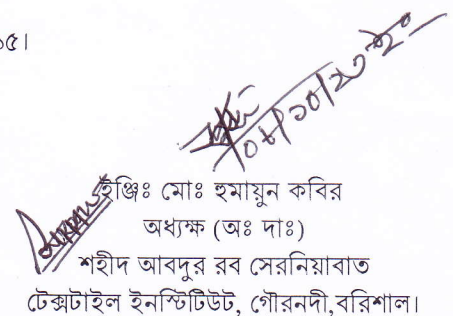 ৫।
০৮/১০/২৩ ইং
ইঞ্জিঃ মোঃ হুমায়ুন কবির
অধ্যক্ষ (অঃ দাঃ)
শহীদ আবদুর রব সেরনিয়াবাত
টেক্সটাইল ইনস্টিটিউট, গৌরনদী,বরিশাল।